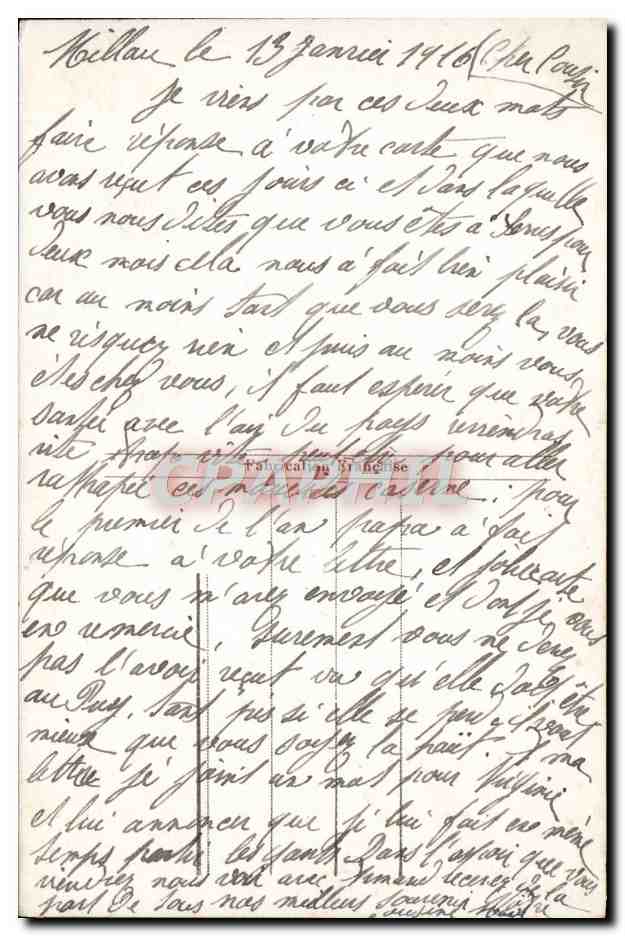 Millau le 13 Janvier 1916 Cher Cousin
Je viens par ces deux mots
faire réponse a votre carte que nous
avons reçut ces jours ci et dans laquelle
vous nous dites que vous êtes a pour
deux mois cella nous a fait bien plaisir
car au moins tant que vous serez la, vous
ne risquez rien et puis au moins vous
êtes chez vous, il faut espérer que votre
santée avec l'air du pays reviendras
vite trop vite pour aller
Fabrication Française
CPAPHIL
rattraper ces caserne; pour
le premier de l'an papa a fait
réponse a votre lettre, et jolie carte
que vous m'avez envoyé et dont je vous
en remercie, surement vous ne devez
pas l'avoir reçut vu qu'elle doit être
au Puy. Tant pis si elle se perd, il vaut
mieux que vous soyez la A ma
lettre je joint un mot pour Virginie
et lui annoncer que je lui fait en même
temps les gants Dans l'espoir que vous
viendrez nous voir avec Armand recevez de la
part de tous nos meilleurs souvenir Votre
cousine